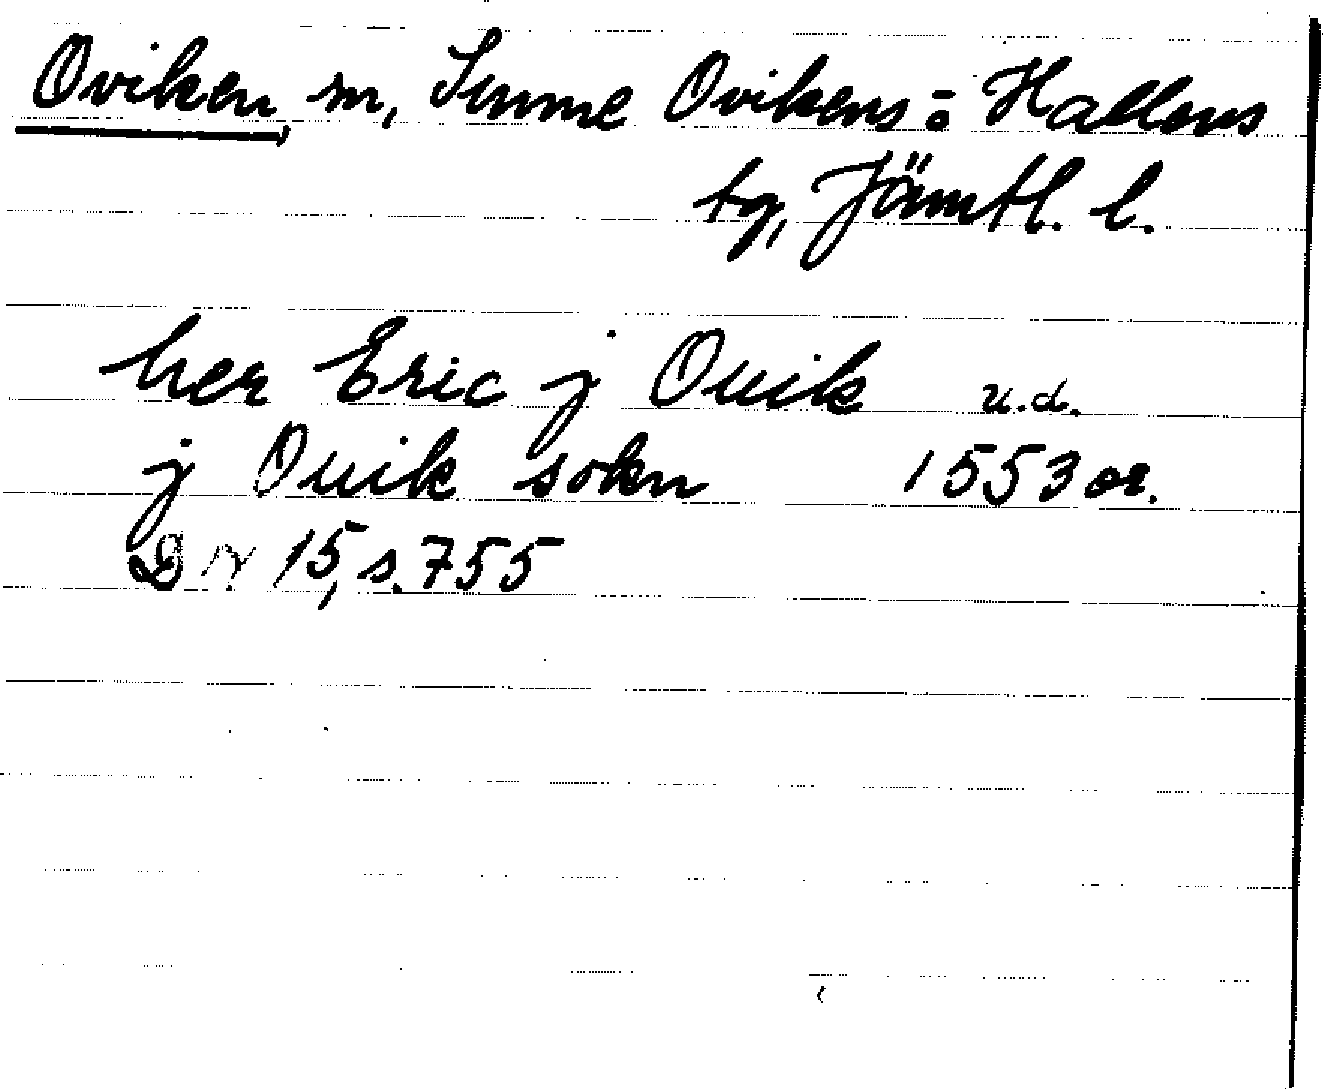 Oviken sn, Sunne Ovikens o Hallens
tg, Jämtl. l.
her Eric j Ouik u.d.
j Ouik sokn 1553 or.
DN 15, s. 755